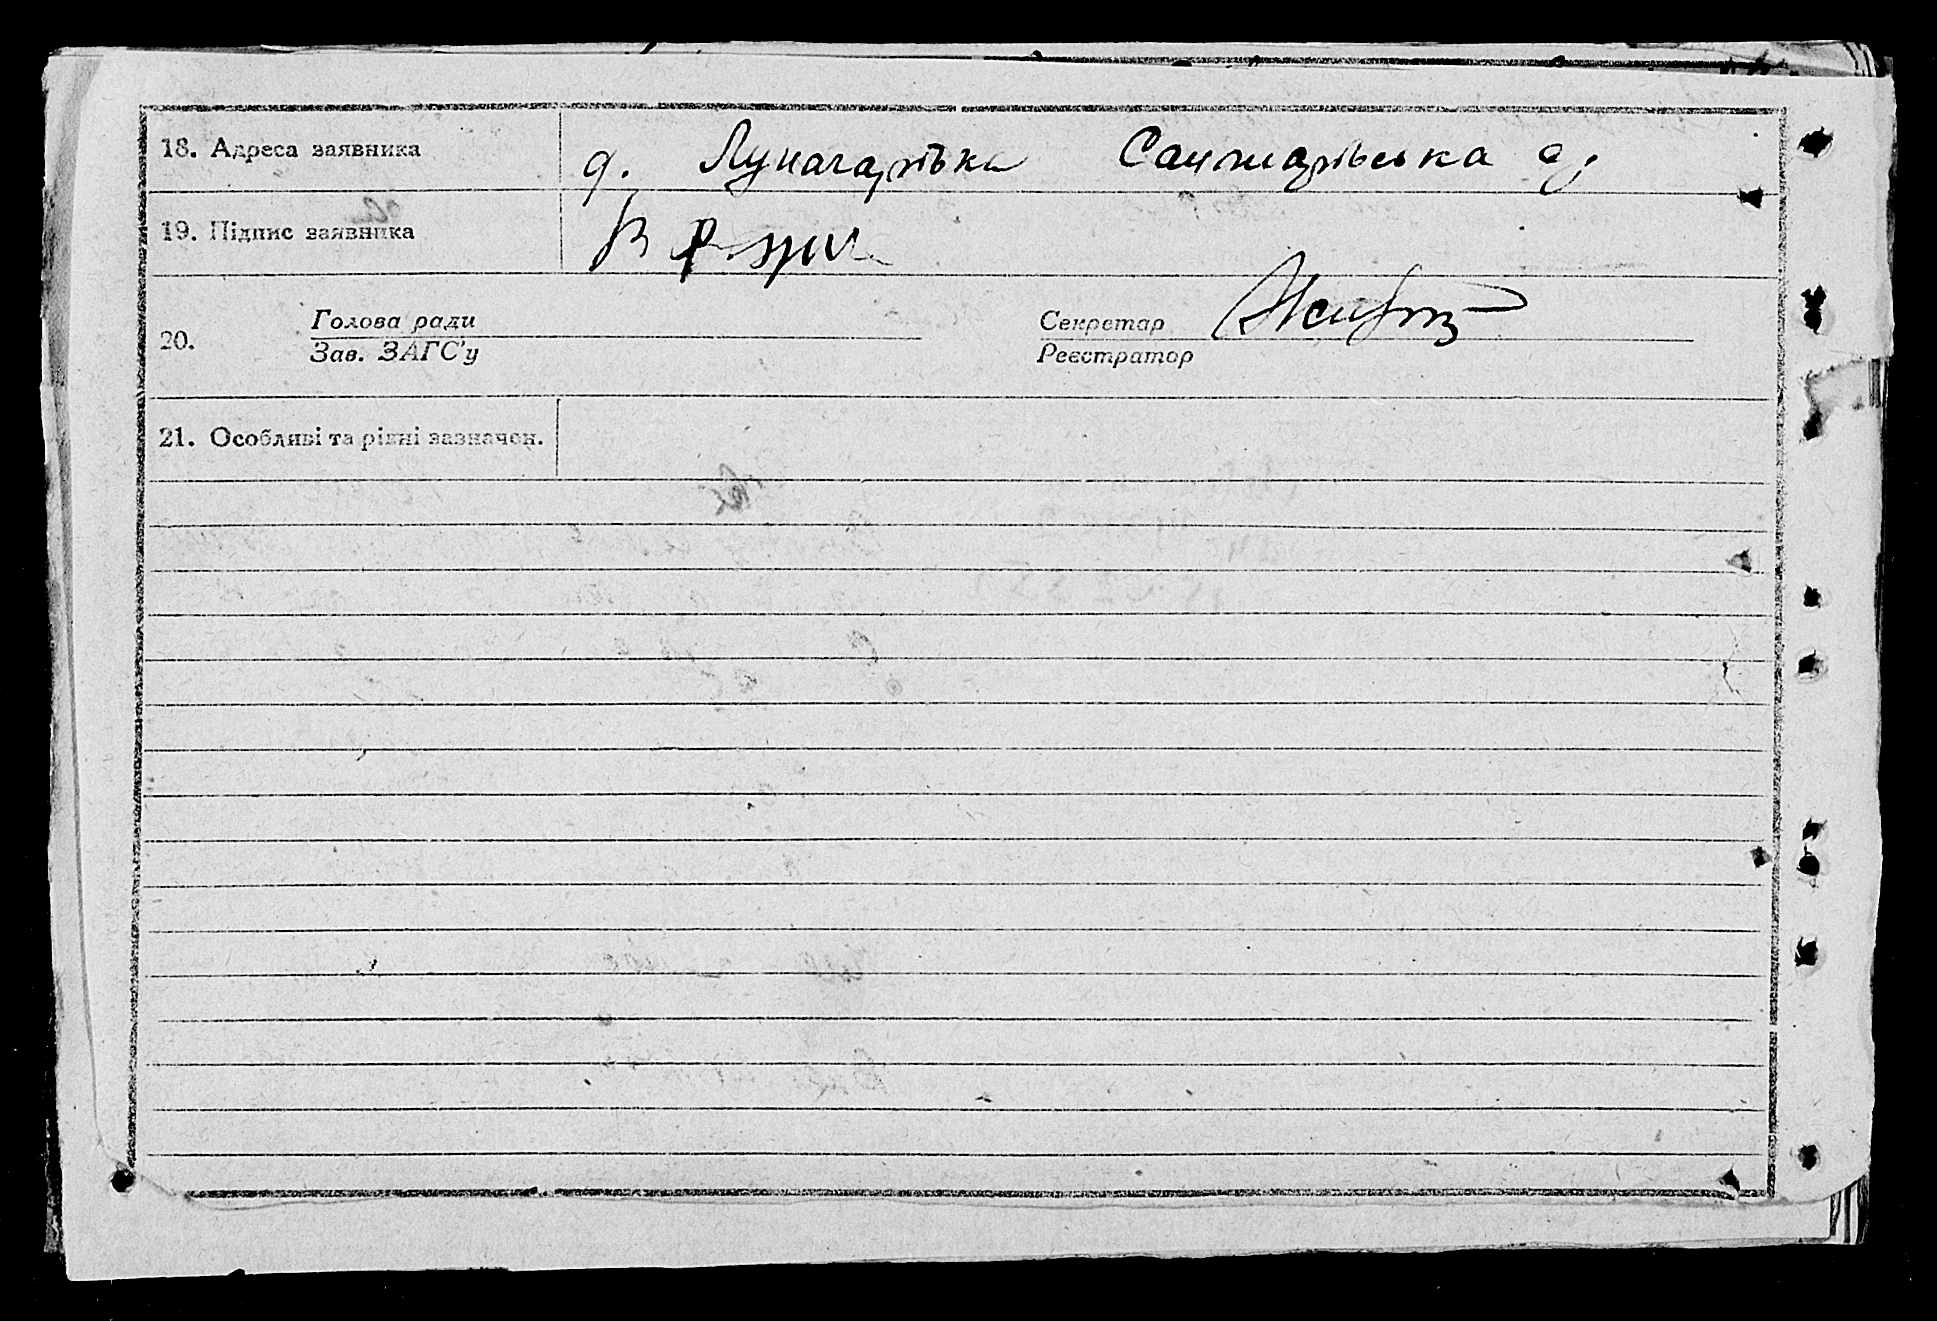 18. Адреса заявника д. Луначарівка Санжарівська с/
19. Підпис заявника
20. Голова ради Секретар
Зав. ЗАГС'у Реєстратор
21. Особливі та різні зазначен.